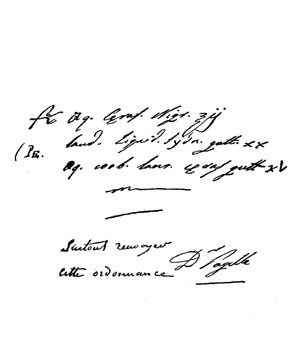 Aq. Ceras. Nigr. ʒij
laud. liquid. Sydn. gutt. xx
Aq. coob. laur. ceras gutt xv
Surtout renvoyer
cette ordonnance Dr